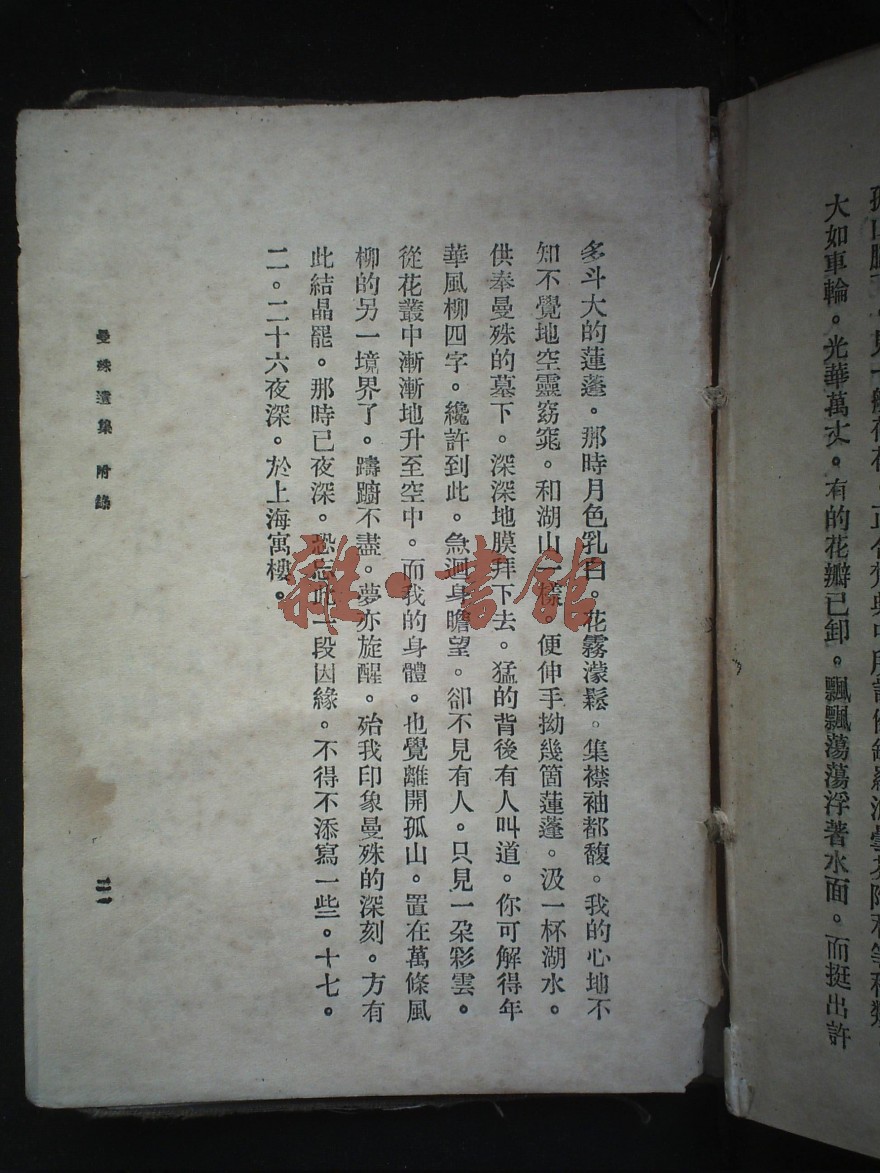 大如車輪。光華萬丈。有的花瓣已卸。飄飄蕩蕩浮著水面。而挺出許
多斗大的蓮蓬。那時月色乳白。花霧濛鬆。集襟袖都馥。我的心地不
知不覺地空靈窈窕。和湖山一樣 便伸手拗幾箇蓮蓬。汲一杯湖水。
供奉曼殊的墓下。深深地膜拜下去。猛的背後有人叫道。你可解得年
華風柳四字。纔許到此。急迴身瞻望。卻不見有人。只見一朶彩雲。
從花叢中漸漸地升至空中。而我的身體。也覺離開孤山。置在萬條風
柳的另一境界了。躊躕不盡。夢亦旋醒。殆我印象曼殊的深刻。方有
此結晶罷。那時已夜深。恐忘此一段因緣。不得不添寫一些。十七。
二。二十六夜深。於上海寓樓。
曼殊遺集 附錄
雜·書館